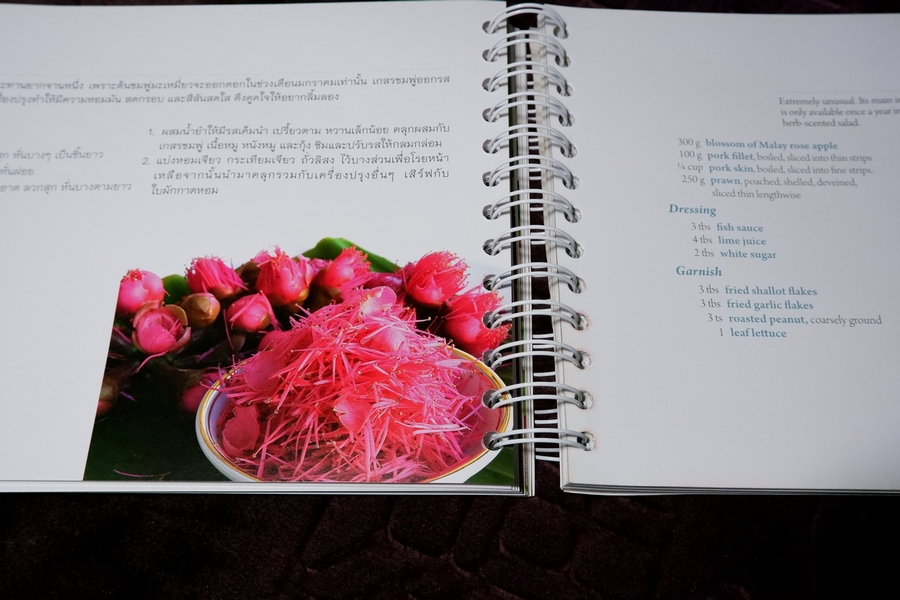 ะทานยากจานหนึ่ง เพราะต้นชมพู่มะเหมี่ยวจะออกดอกในช่วงเดือนมกราคมเท่านั้น เกสรชมพู่ออกรส
องปรุงทำให้มีความหอมมัน สดกรอบ และสีสันสดใส ดึงดูดใจให้อยากลิ้มลอง
1. ผสมน้ำยำให้มีรสเค็มนำ เปรี้ยวตาม หวานเล็กน้อย คลุกผสมกับ
เกสรชมพู่ เนื้อหมู หนังหมู และกุ้ง ชิมและปรับรสให้กลมกล่อม
2. แบ่งหอมเจียว กระเทียมเจียว ถั่วลิสง ไว้บางส่วนเพื่อโรยหน้า
เหลือจากนั้นนำมาคลุกรวมกับเครื่องปรุงอื่นๆ เสิร์ฟกับ
ใบผักกาดหอม
ก หั่นบางๆ เป็นชิ้นยาว
หั่นฝอย
อาด ลวกสุก หั่นบางตามยาว
Extremely unusual. Its main i
is only available once a year i
herb-scented salad.
300 g blossom of Malay rose apple
100 g pork fillet, boiled, sliced into thin strips
¼ cup pork skin, boiled, sliced into fine strips.
250 g prawn, poached, shelled, deveined,
sliced thin lengthwise
Dressing
3 tbs fish sauce
4 tbs lime juice
2 tbs white sugar
Garnish
3 tbs fried shallot flakes
3 tbs fried garlic flakes
3 ts roasted peanut, coarsely ground
1 leaf lettuce